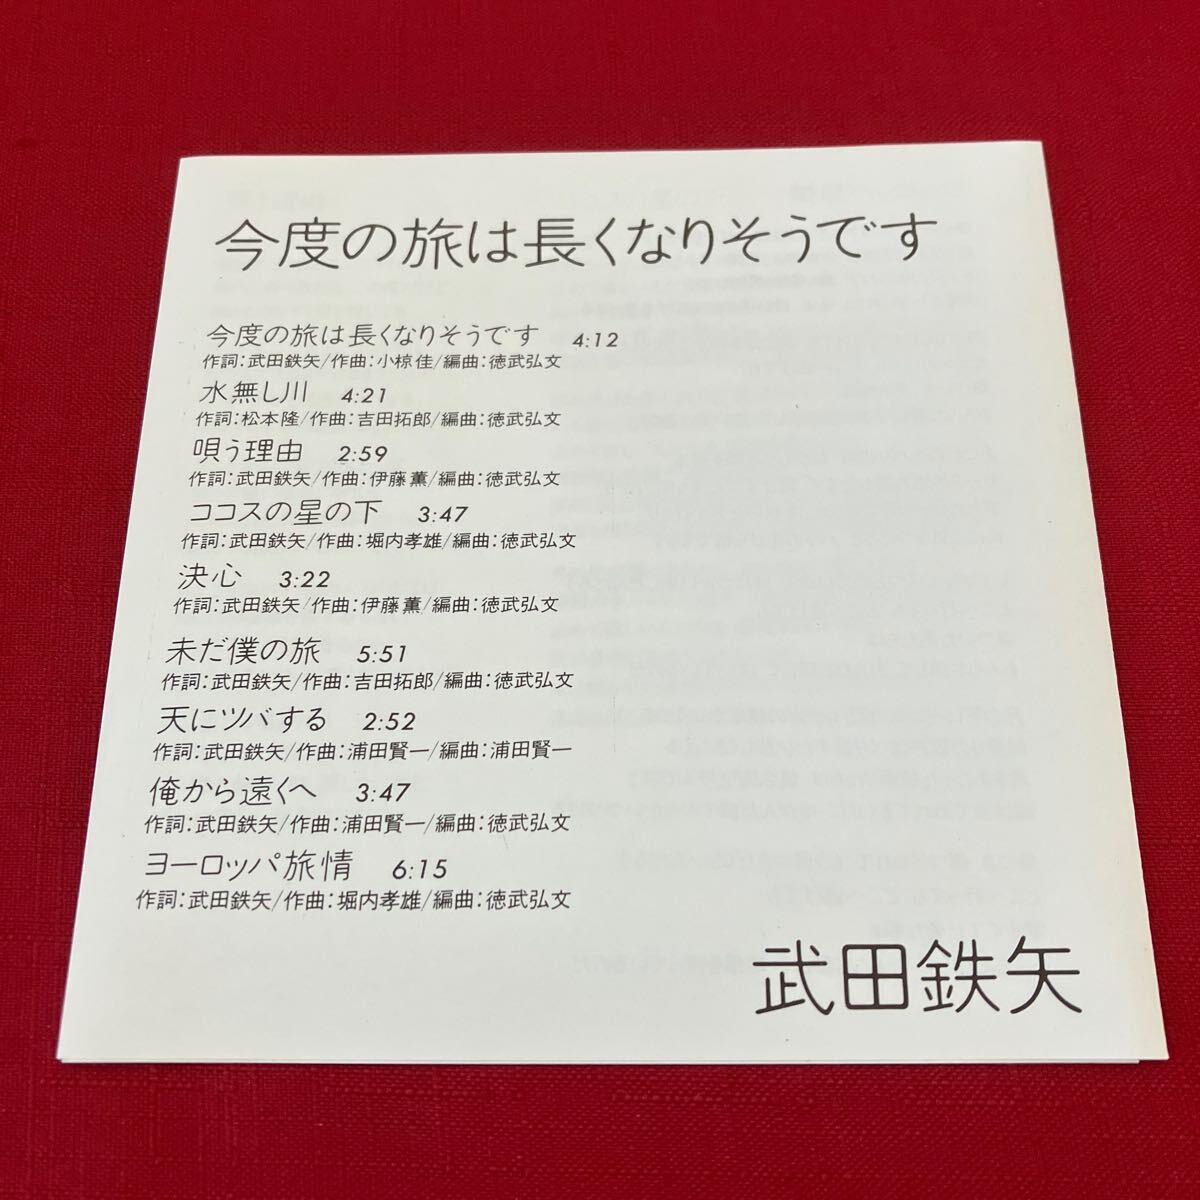 今度の旅は長くなりそうです
今度の旅は長くなりそうです 4:12
作詞:武田鉄矢/作曲:小椋佳/編曲:徳武弘文
水無し川 4:21
作詞:松本隆/作曲:吉田拓郎/編曲:徳武弘文
唄う理由 2:59
作詞:武田鉄矢/作曲:伊藤薫/編曲:徳武弘文
ココスの星の下 3:47
作詞:武田鉄矢/作曲:堀内孝雄/編曲:徳武弘文
決心 3:22
作詞:武田鉄矢/作曲:伊藤薫/編曲:徳武弘文
未だ僕の旅 5:51
作詞:武田鉄矢/作曲:吉田拓郎/編曲:徳武弘文
天にツバする 2:52
作詞:武田鉄矢/作曲:浦田賢一/編曲:浦田賢一
俺から遠くへ 3:47
作詞:武田鉄矢/作曲:浦田賢一/編曲:徳武弘文
ヨーロッパ旅情 6:15
作詞:武田鉄矢/作曲:堀内孝雄/編曲:徳武弘文
武田鉄矢